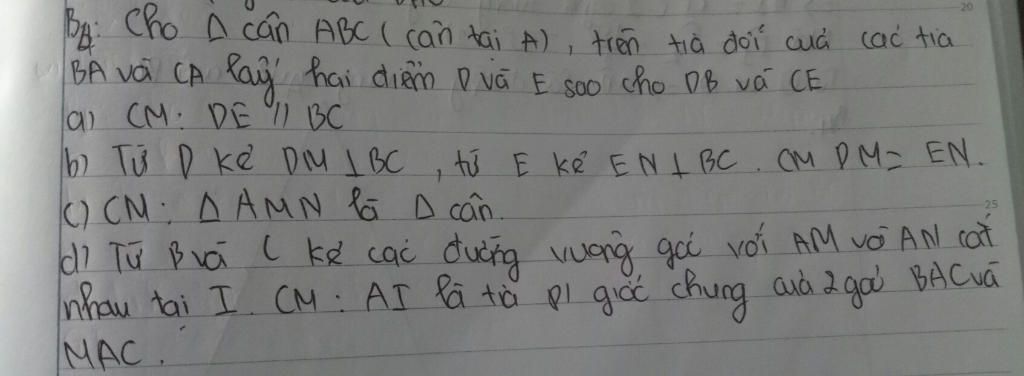 B4: Cho Δ cân ABC (cân tại A), trên tia đối cuả các tia
BA và CA lấy hai điểm D và E sao cho DB và CE
a) CM: DE // BC
b) Từ D kẻ DM ⊥ BC, từ E kẻ EN ⊥ BC. CM DM = EN.
c) CM: Δ AMN là Δ cân.
d) Từ B và C kẻ các đường vuông góc với AM và AN cắt
nhau tại I. CM: AI là tia pl giác chung cuả 2 góc BAC và
MAC.
20
25